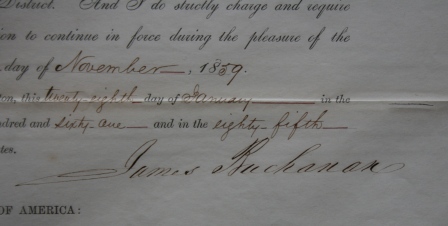 District. And I do strictly charge and require
ion to continue in force during the pleasure of the
day of November, 1859.
ton, this twenty eighth day of January in the
ndred and sixty-one and in the eighty-fifth
tes.
James Buchanan
OF AMERICA: